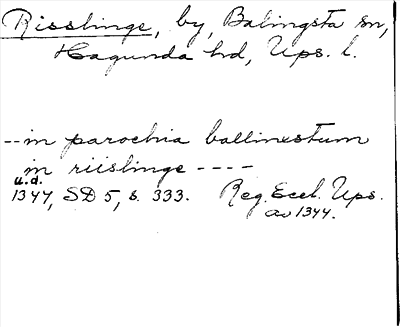 Risslinge, by, Balingsta sn,
Hagunda hd, Ups. l.
-- in parochia ballinxstum
in riislinge ----
u.d.
1344, SD 5, s. 333. Reg. Eccl. Ups.
av 1344.